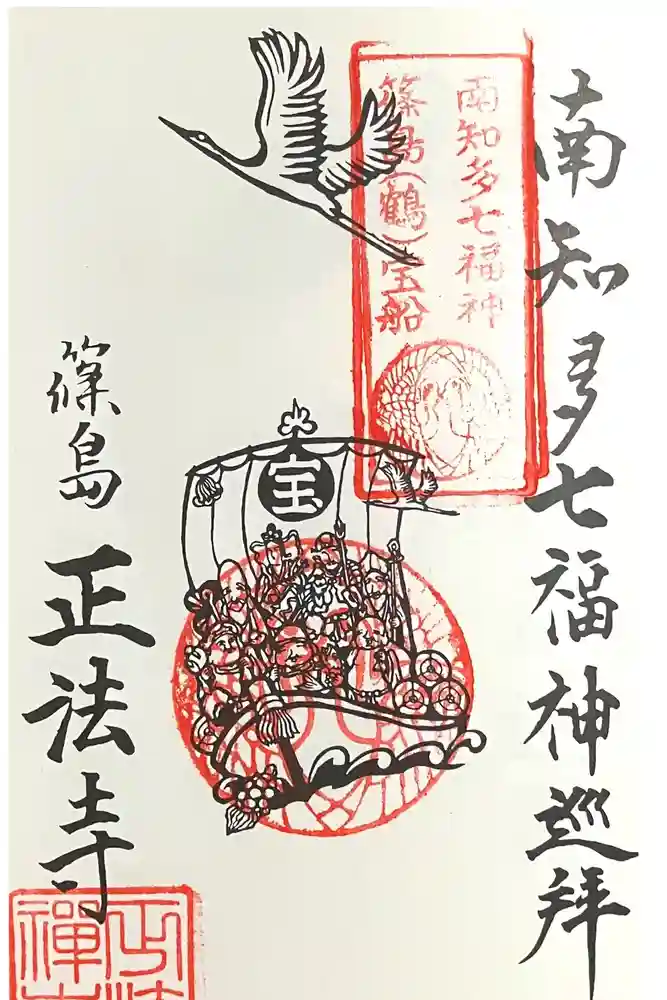 南知多七福神巡拝
南知多七福神
篠島(鶴)宝船
宝
篠島
正法寺
正法
禅